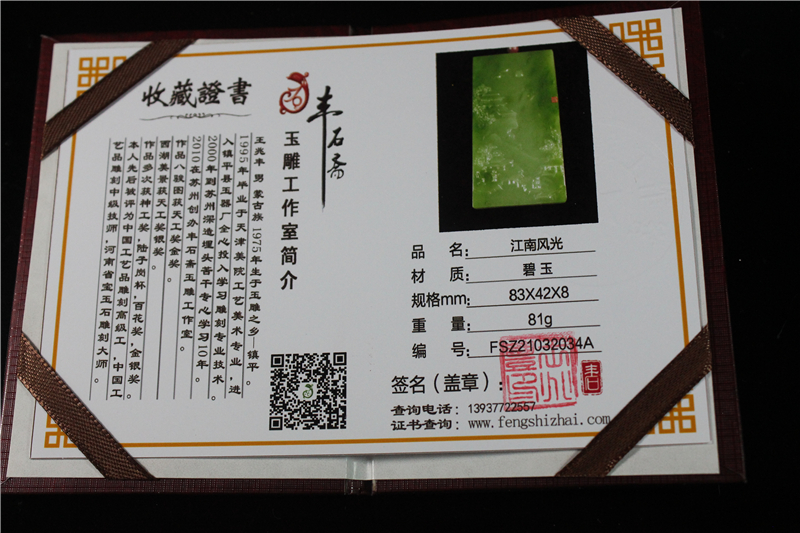 收藏證書
丰石斋
玉雕工作室简介
王兆丰 男 蒙古族 1975年生于玉雕之乡—镇平。
1995年毕业于天津美院工艺美术专业，进
入镇平县玉器厂全心投入学习雕刻专业技术。
2000年到苏州深造埋头苦干专心学习10年。
2010在苏州创办丰石斋玉雕工作室。
作品八骏图获天工奖金奖。
西湖美景获天工奖银奖。
作品多次获神工奖，陆子岗杯，百花奖，金银奖。
本人先后被评为中国工艺品雕刻高级工，中国工
艺品雕刻中级技师，河南省宝玉石雕刻大师。
品 名： 江南风光
材 质： 碧玉
规格mm： 83X42X8
重 量： 81g
编 号： FSZ21032034A
签名（盖章）：
查询电话：13937722557
证书查询：www.fengshizhai.com